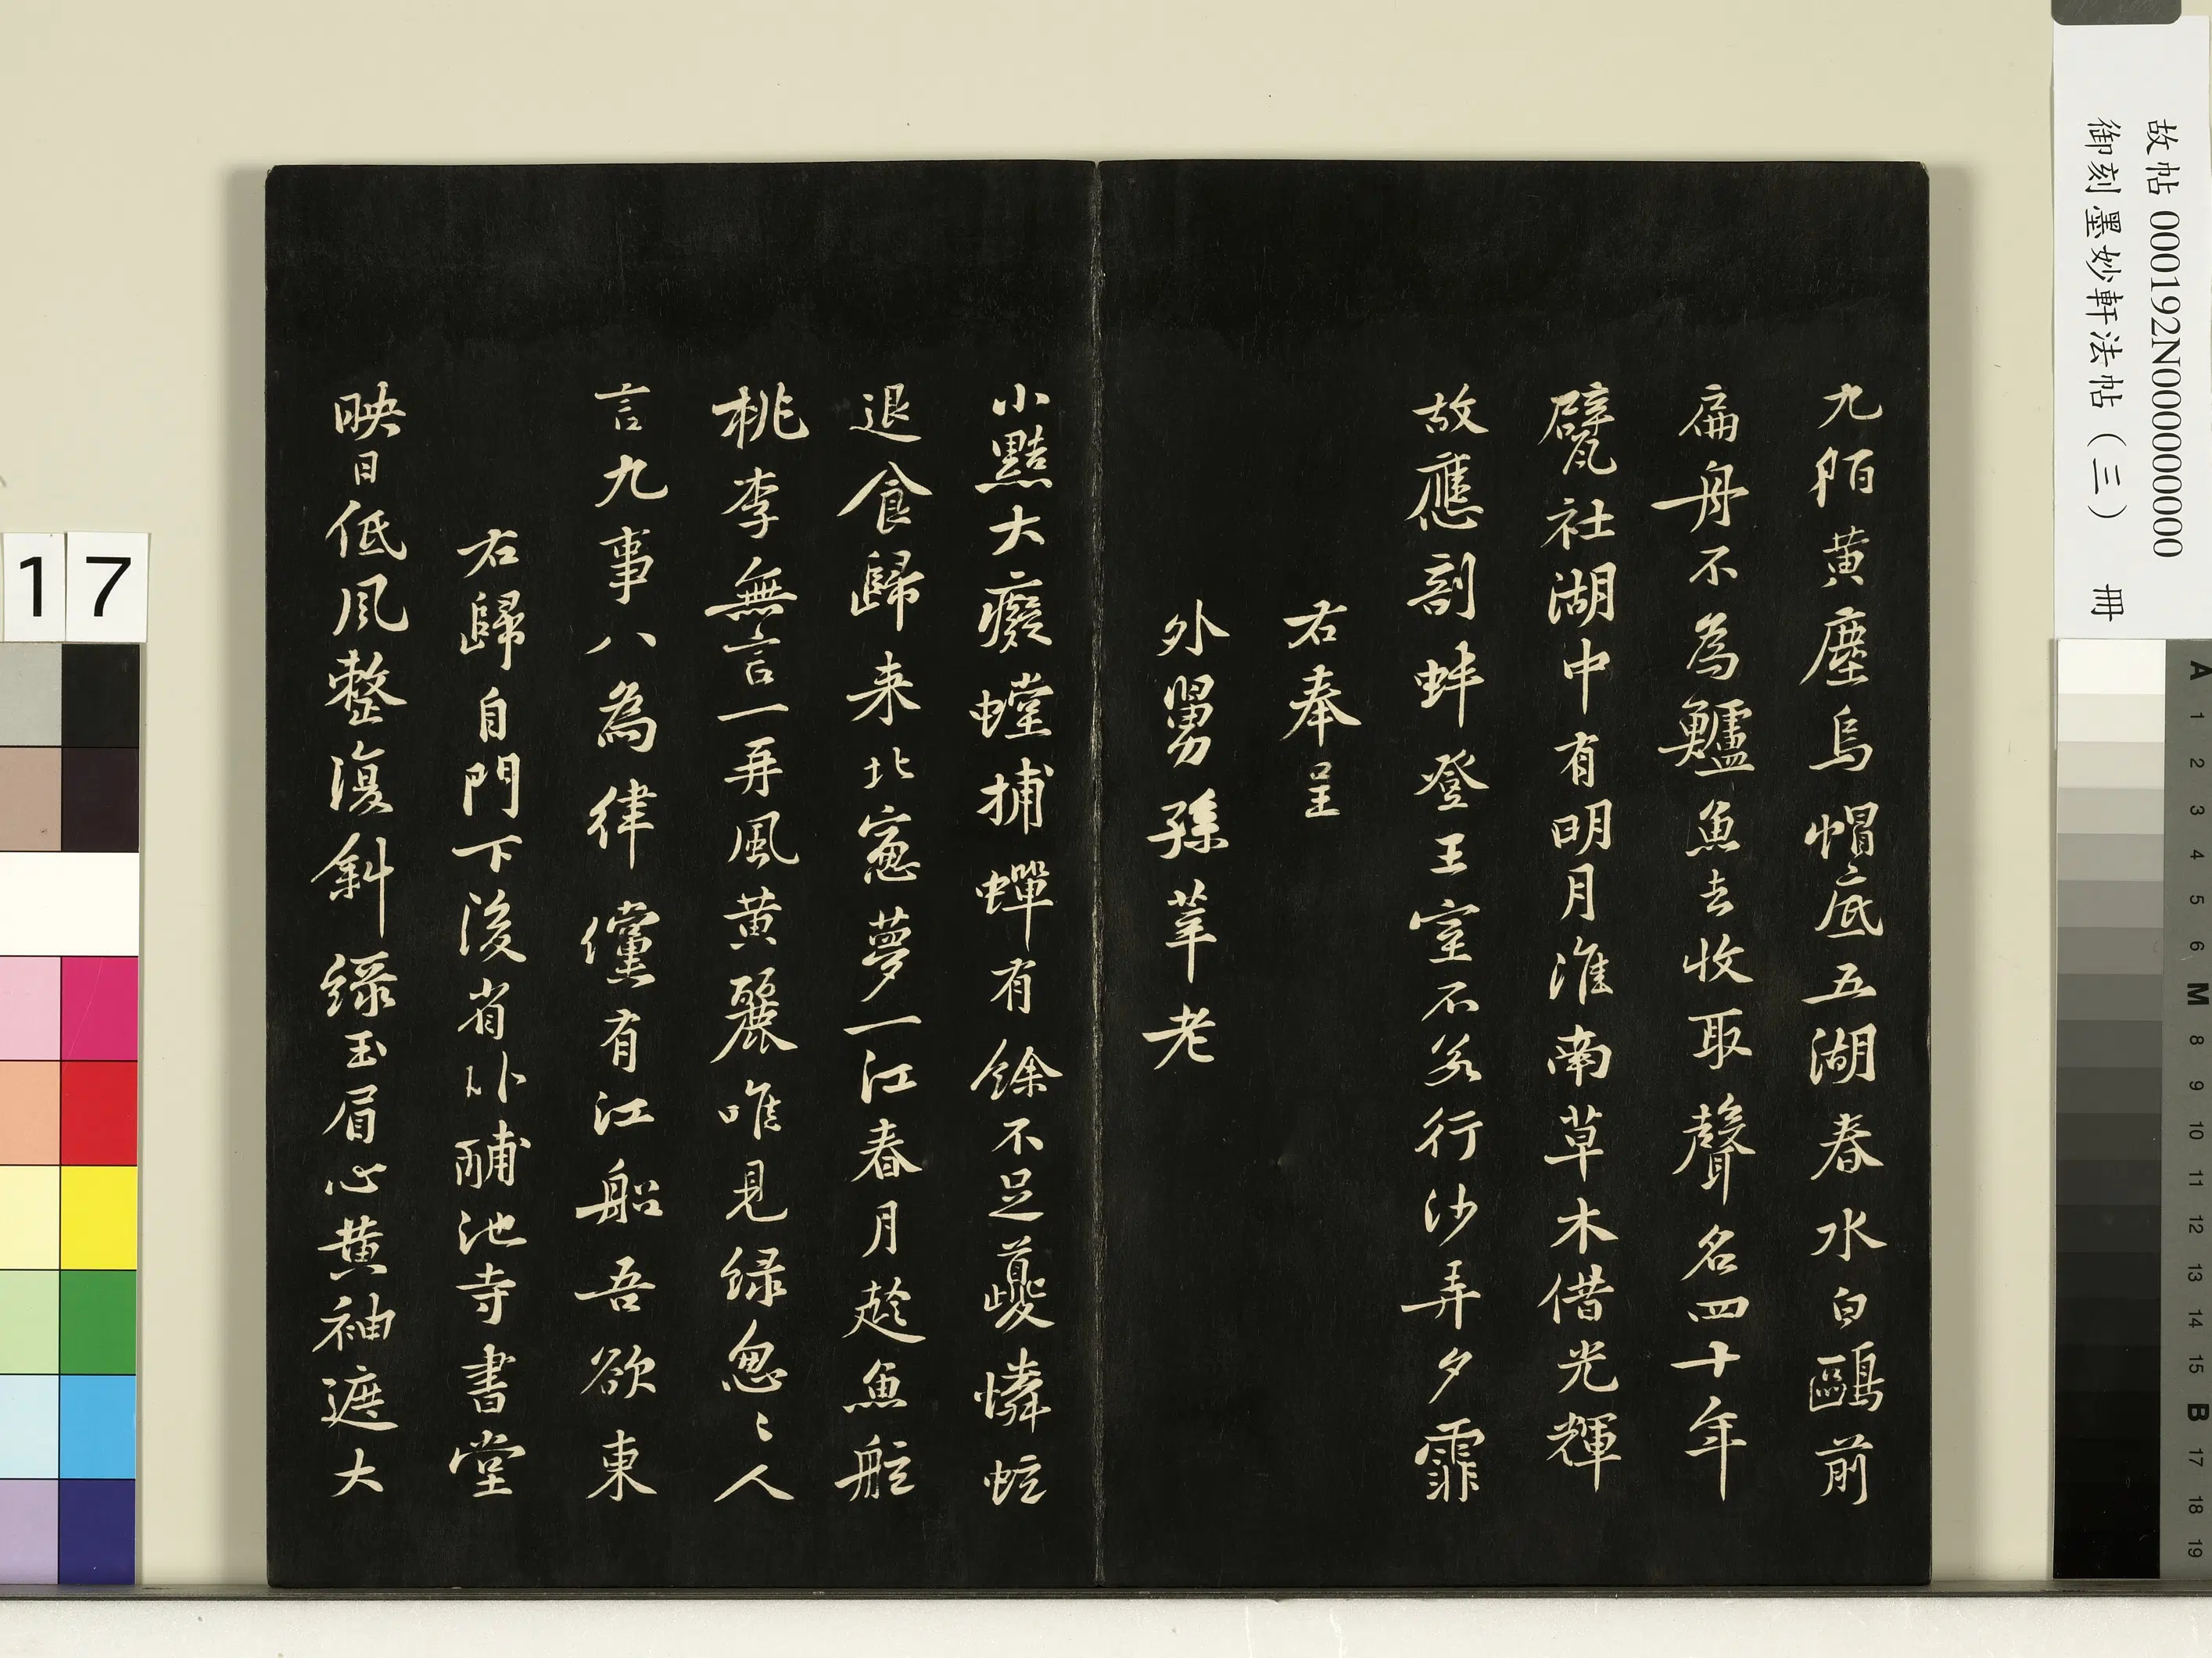 九陌黄塵烏帽底五湖春水白鷗前
扁舟不為鱸魚去收取聲名四十年
甓社湖中有明月淮南草木借光輝
故應剖蚌登王室不若行沙弄夕霏
右奉呈
外舅孫莘老
小黠大癡螳捕蟬有餘不足夔憐蚿
退食歸来北窓夢一江春月趂魚舡
桃李無言一再風黄麗唯見緑怱〻人
言九事八為律儻有江船吾欲東
右歸自門下後省卧酺池寺書堂
映日低風整復斜緑玉眉心黄袖遮大
故帖 000192N000000000
御刻墨妙軒法帖（三） 冊
17
A 1 2 3 4 5 6 M 8 9 10 11 12 13 14 15 B 17 18 19